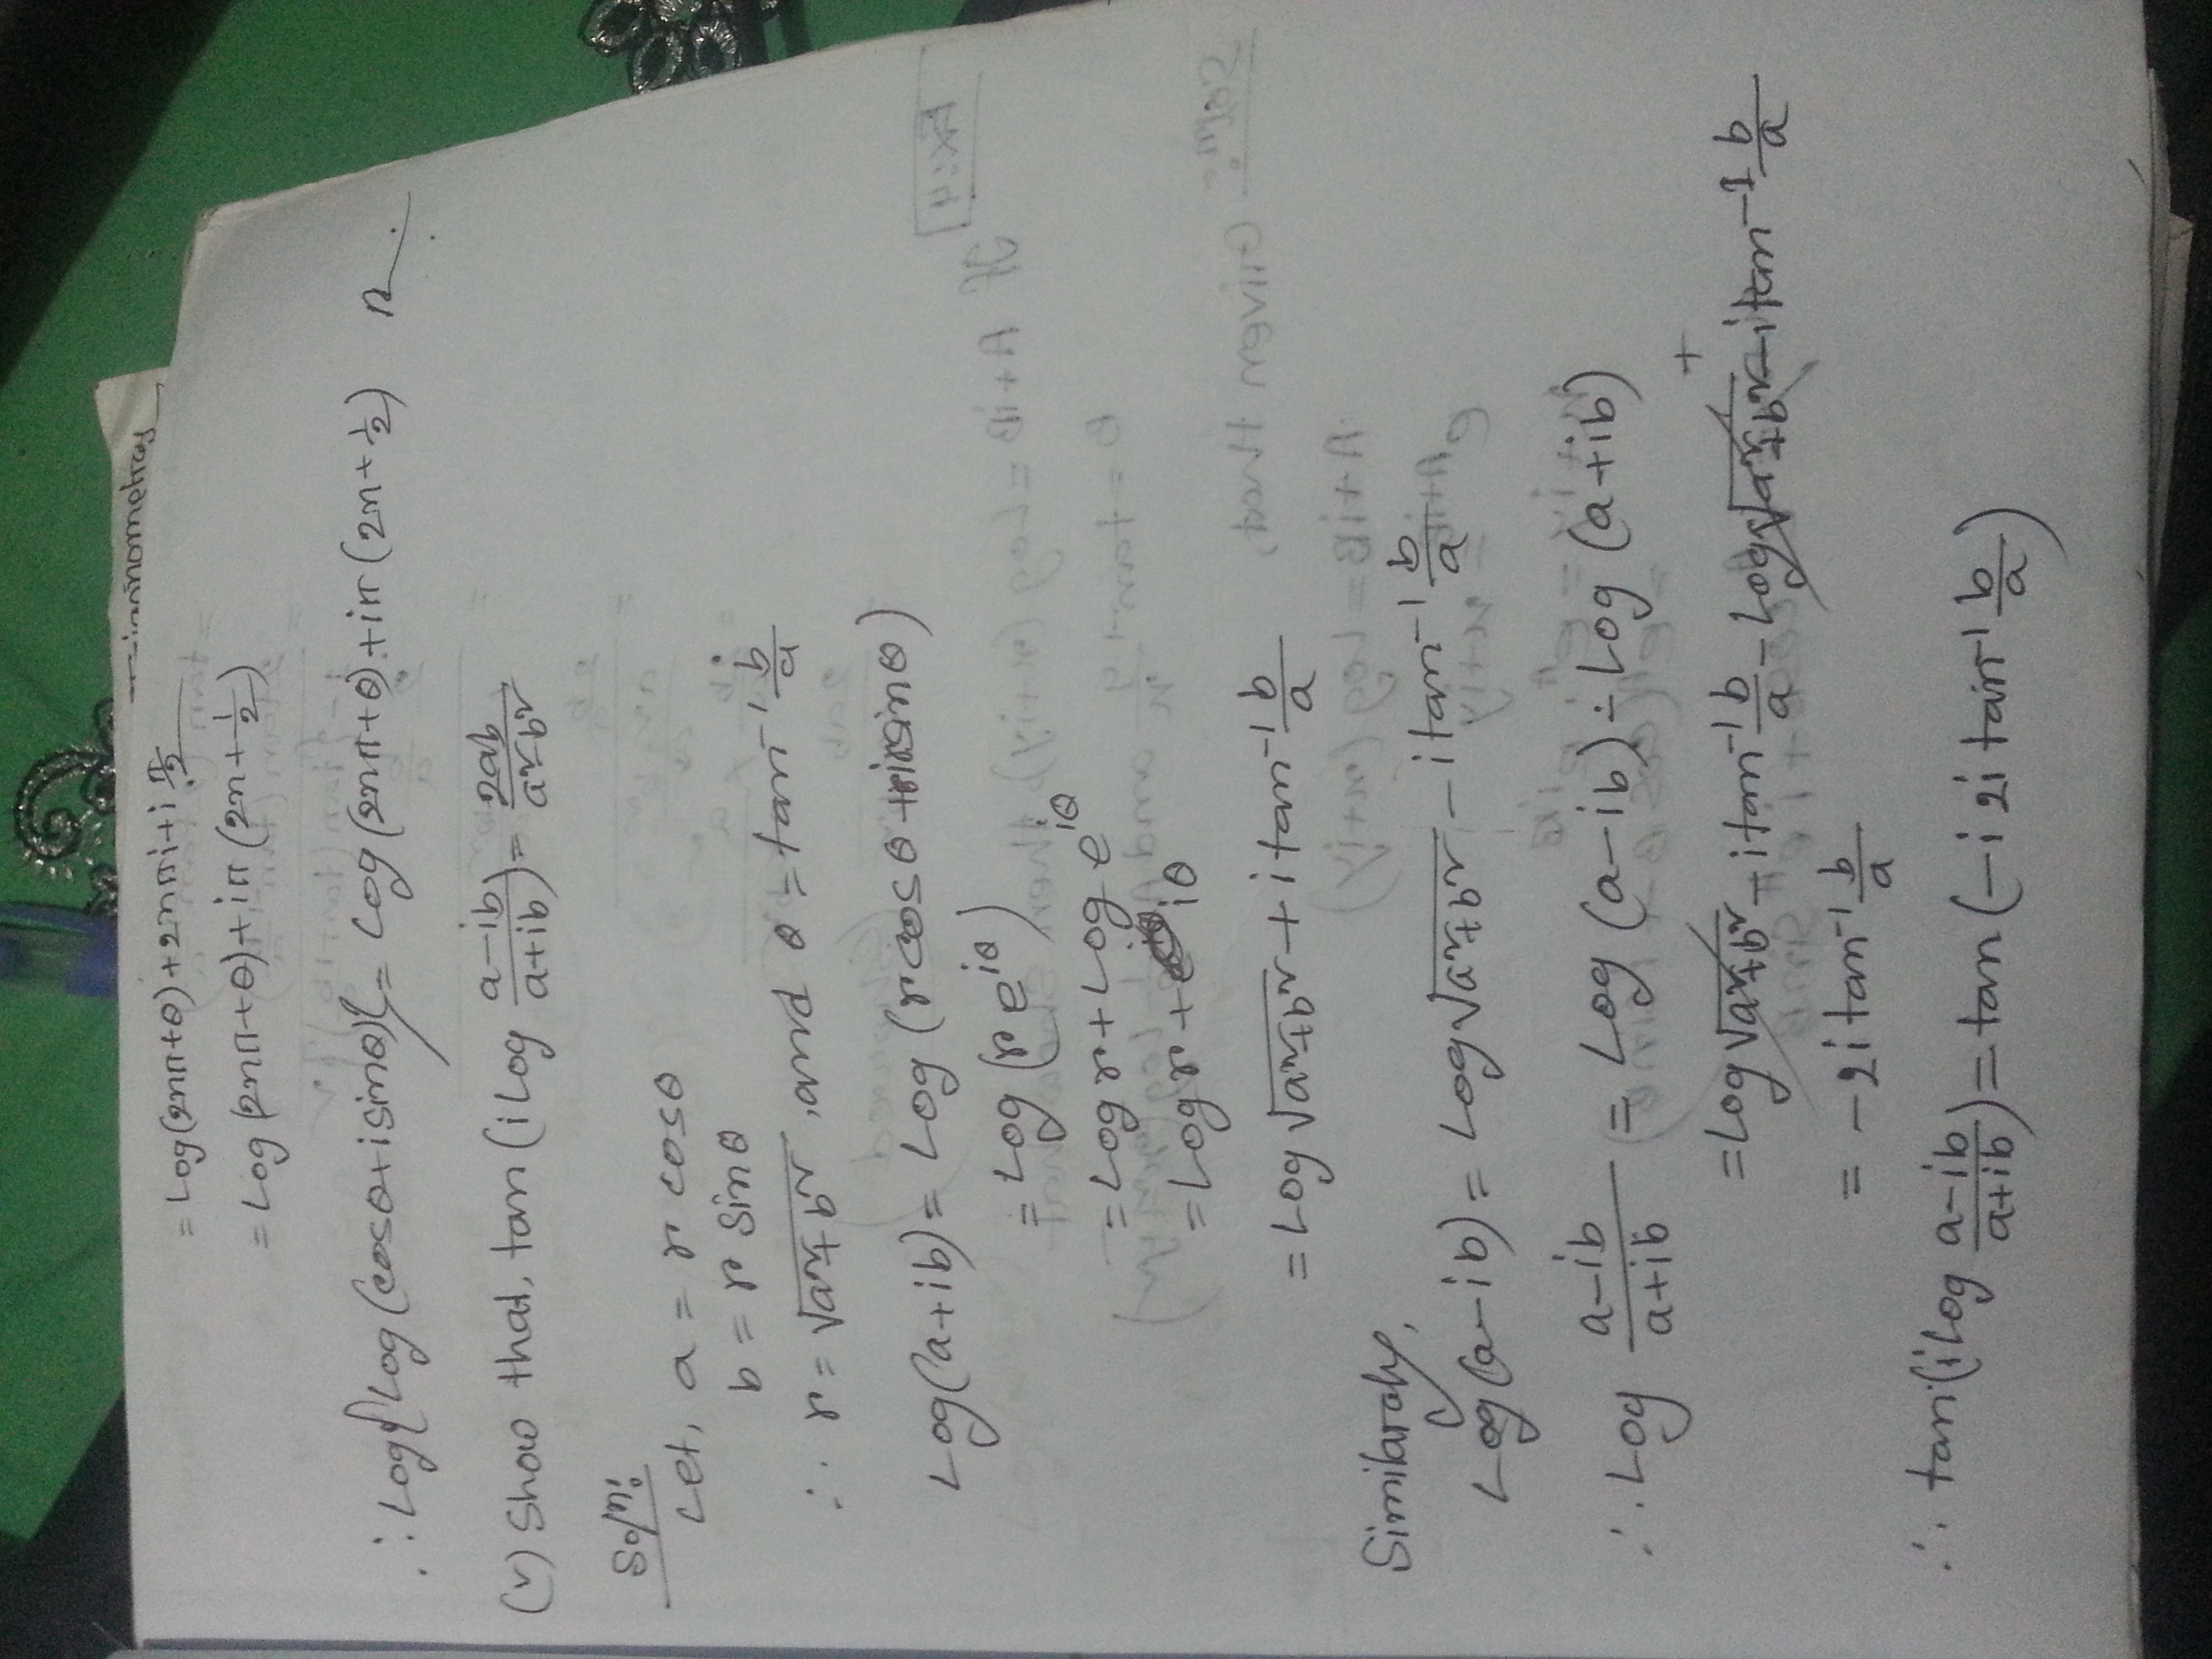 = Log(2nπ+θ)+2nπi+i π/2
= Log(2nπ+θ)+iπ(2n+1/2)
∴ Log{Log(cosθ+isinθ)} = Log(2nπ+θ)+iπ(2n+1/2)
(v) Show that, tan(iLog (a-ib)/(a+ib)) = 2ab/(a²-b²)
Soln:
Let, a = r cosθ
b = r sinθ
∴ r = √(a²+b²), and θ = tan⁻¹ b/a
Log(a+ib) = Log(rcosθ+irsinθ)
= Log(re^{iθ})
= Logr+Log e^{iθ}
= Logr+iθ
= Log√(a²+b²)+itan⁻¹ b/a
Similaraly,
Log(a-ib) = Log√(a²+b²)-itan⁻¹ b/a
∴ Log (a-ib)/(a+ib) = Log(a-ib)-Log(a+ib)
= Log√(a²+b²)-itan⁻¹ b/a-Log√(a²+b²)-itan⁻¹ b/a
= -2itan⁻¹ b/a
∴ tan(iLog (a-ib)/(a+ib)) = tan(-i2itan⁻¹ b/a)